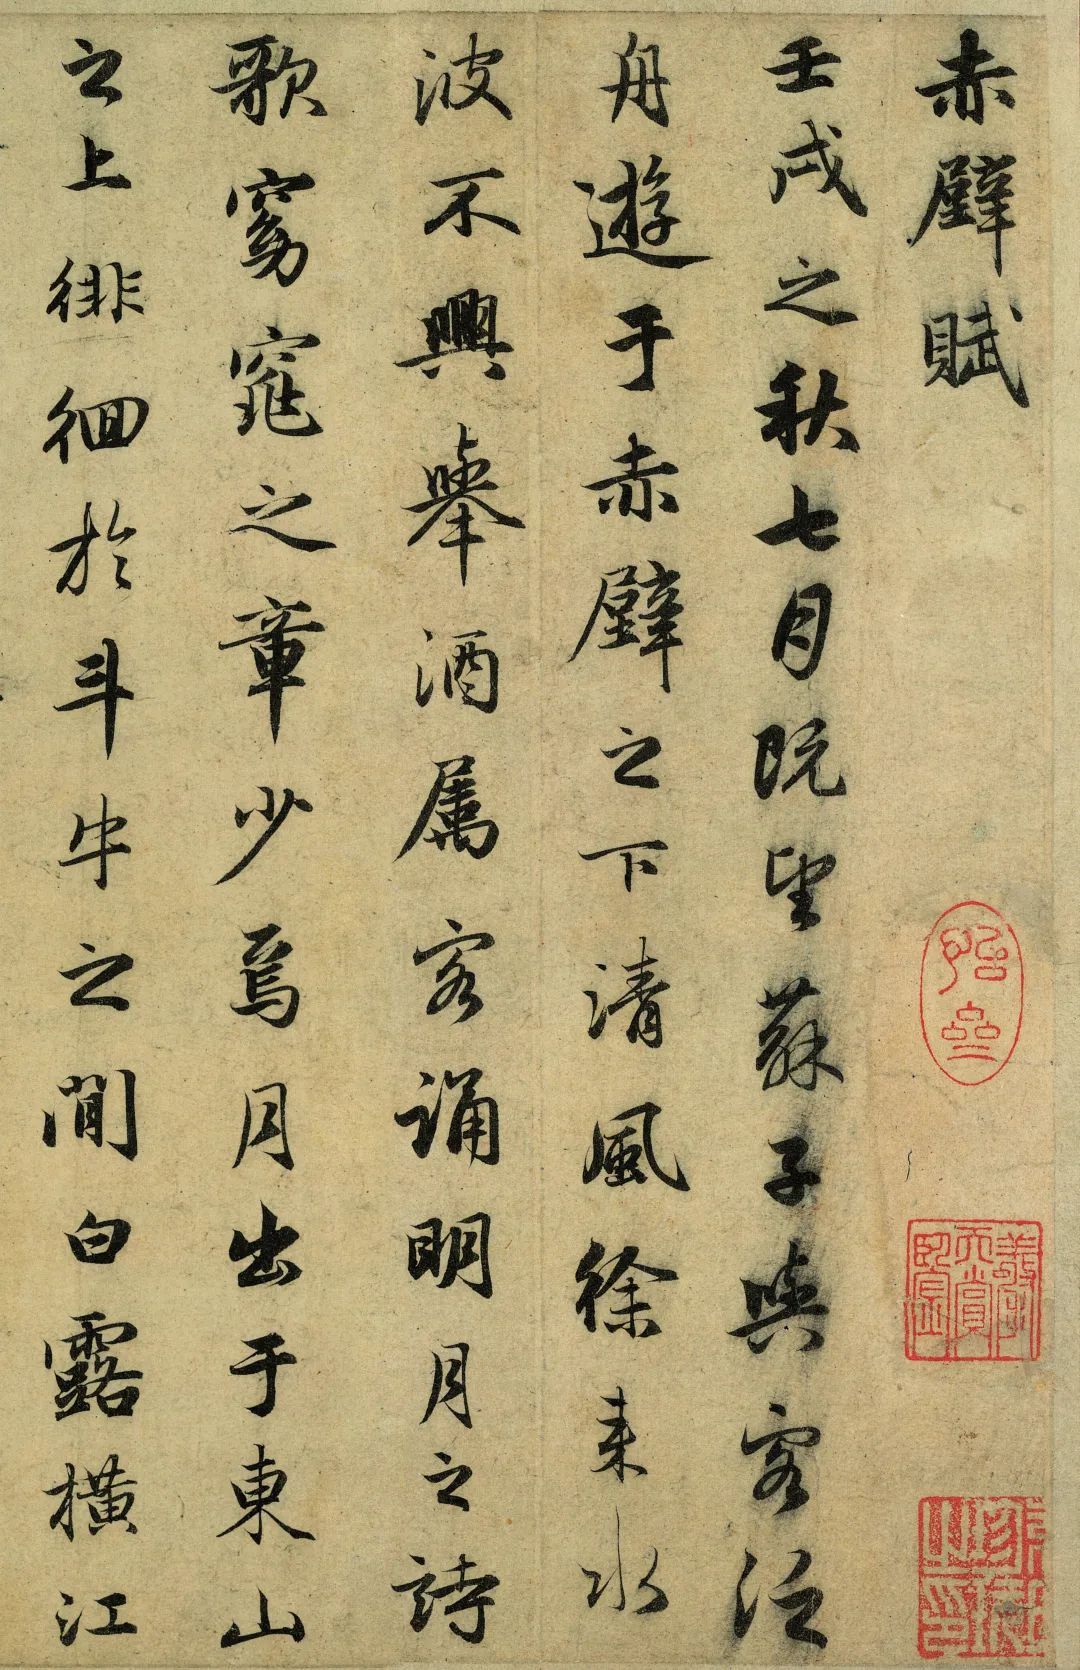 赤壁賦
壬戌之秋七月既望蘇子與客泛
舟遊于赤壁之下清風徐来水
波不興舉酒属客誦明月之詩
歌窈窕之章少焉月出于東山
之上徘徊於斗牛之間白露橫江